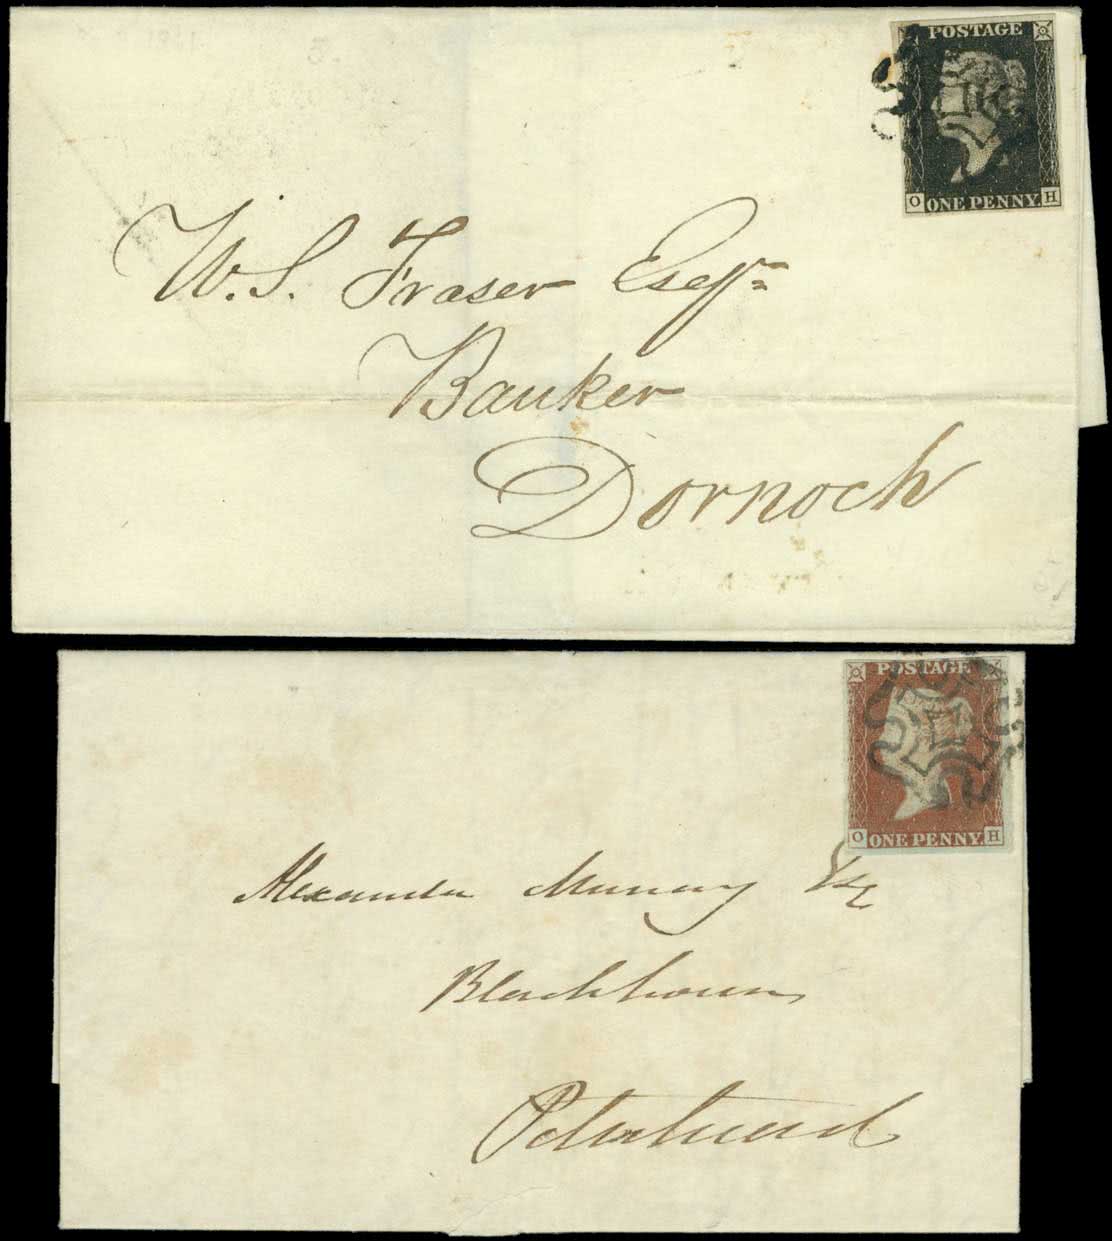 POSTAGE
ONE PENNY.
O H
W. S. Fraser Esqr.
Banker
Dornoch
POSTAGE
ONE PENNY.
O H
Alexander Murray Esq
Blackhouse
Peterhead